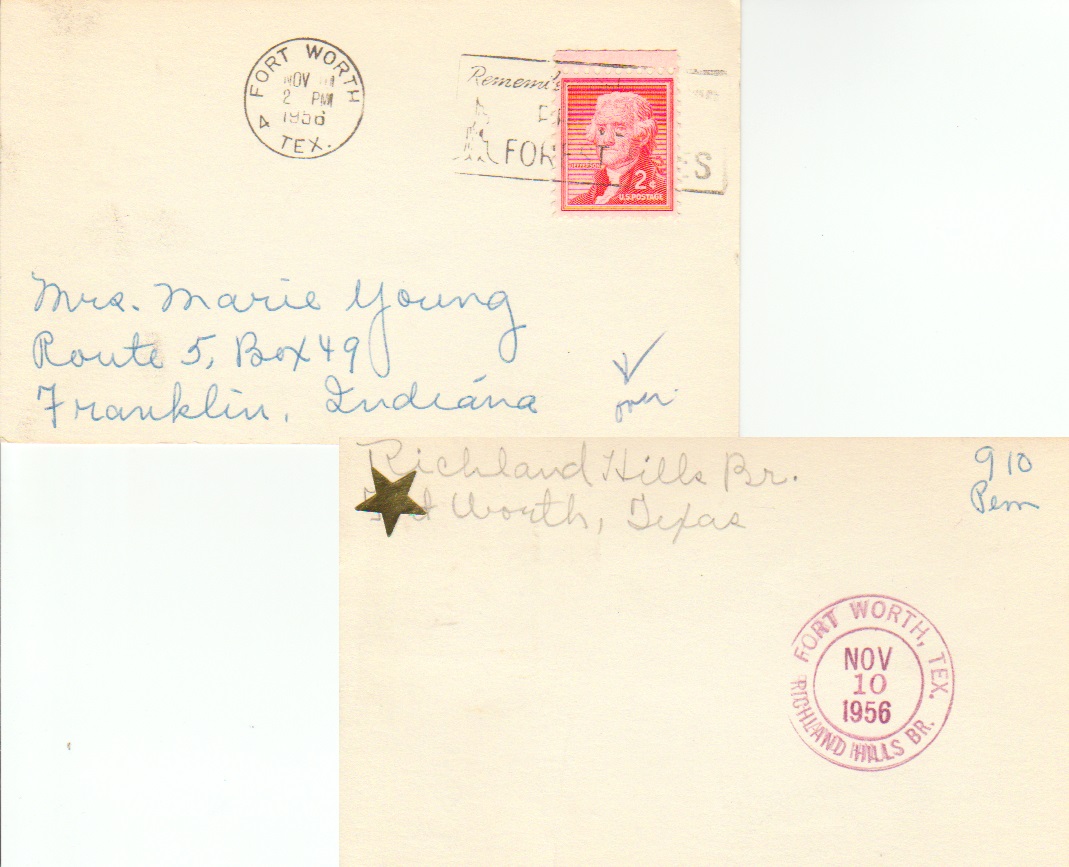 FORT WORTH
NOV
2 PM
1956
4 TEX.
FOR
ES
JEFFERSON
2¢
U.S. POSTAGE
Mrs. Marie Young
Route 5, Box 49
Franklin, Indiana
over
Richland Hills Br.
Worth, Texas
910
Penn
FORT WORTH, TEX.
NOV
10
1956
RICHLAND HILLS BR.